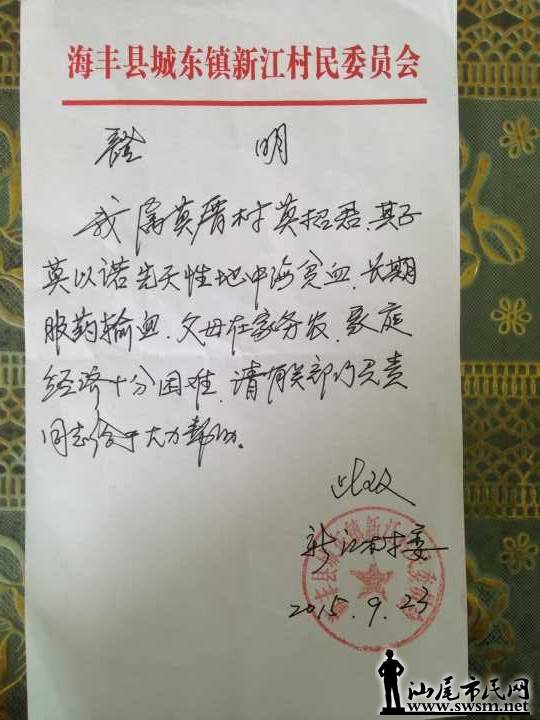 海丰县城东镇新江村民委员会
證 明
我属莫厝村莫招君,其子
莫以诺先天性地中海贫血,长期
服药输血,父母在家务农,家庭
经济十分困难,请有关部门负责
同志给于大力帮助。
此致
新江村委
2015.9.23
海丰县城东镇新江村民委员会
汕尾市民网
www.swsm.net